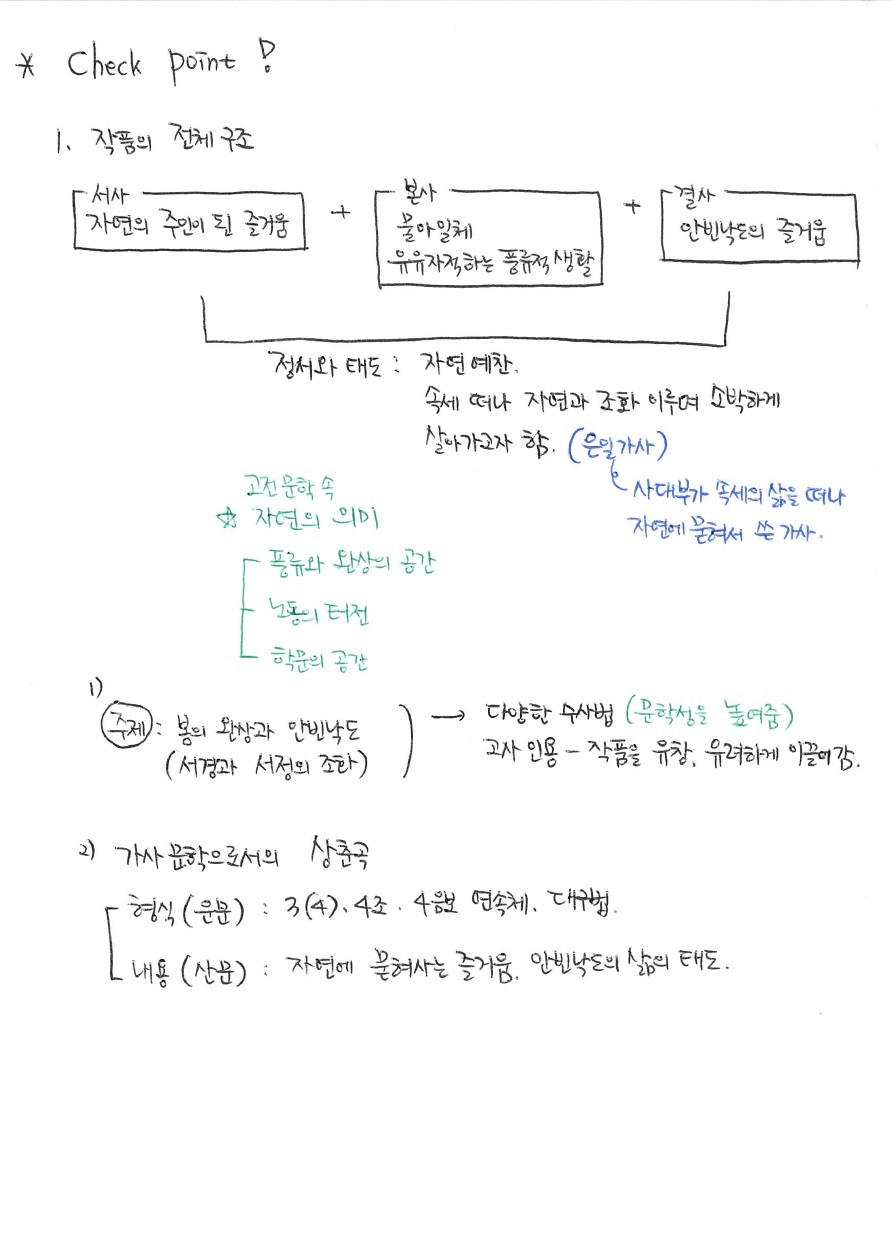 * Check point !
1. 작품의 전체 구조
서사
자연의 주인이 된 즐거움
+
본사
물아일체
유유자적하는 풍류적 생활
+
결사
안빈낙도의 즐거움
정서와 태도 : 자연 예찬.
속세 떠나 자연과 조화 이루며 소박하게
살아가고자 함. (은일가사)
사대부가 속세의 삶을 떠나
자연에 묻혀서 쓴 가사.
고전문학 속
☆ 자연의 의미
풍류와 완상의 공간
노동의 터전
학문의 공간
1)
주제 : 봄의 완상과 안빈낙도
(서경과 서정의 조화)
→ 다양한 수사법 (문학성을 높여줌)
고사 인용 - 작품을 유창, 유려하게 이끌어감.
2) 가사 문학으로서의 상춘곡
형식 (운문) : 3(4)·4조. 4음보 연속체. 대구법.
내용 (산문) : 자연에 묻혀사는 즐거움, 안빈낙도의 삶의 태도.